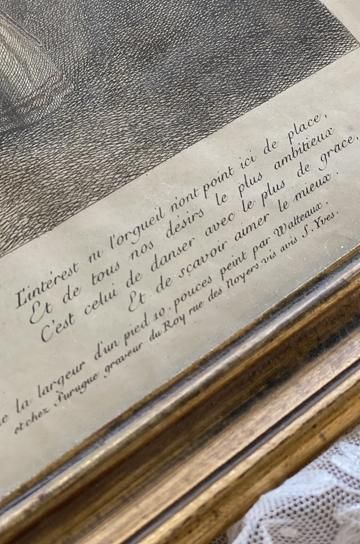 L'intérest ni l'orgueil n'ont point ici de place,
Et de tous nos désirs le plus ambitieux
C'est celui de danser avec le plus de grace,
Et de sçavoir aimer le mieux.
la largeur d'un pied 10. pouces peint par Watteaux.
et chez Surugue graveur du Roy rue des Noyers vis avis S. Yves.